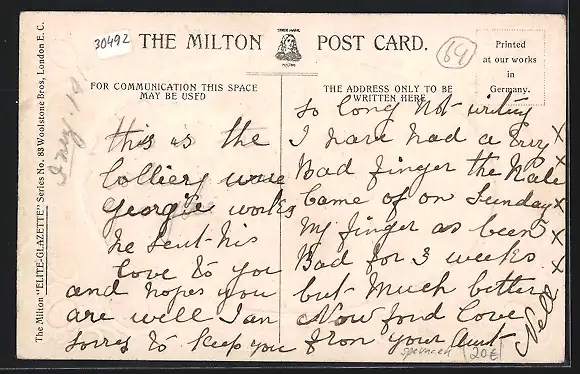 30492
THE MILTON POST CARD.
TRADE MARK
MILTON
64
Printed
at our works
in
Germany.
FOR COMMUNICATION THIS SPACE
MAY BE USED
THE ADDRESS ONLY TO BE
WRITTEN HERE
The Milton "ELITE-GLAZETTE" Series No. 83 Woolstone Bros, London E. C.
this is the
Colliery ware
Georgie works
he sent his
love to you
and hopes you
are well I an
sorres to keep you
so long not writing
I have had a very
Bad finger the Nale
Came of on Sunday
My finger as been
Bad for 3 weeks
but much better
Now fond love
from your Aunt
Nell
x
x
x
x
x
20 €